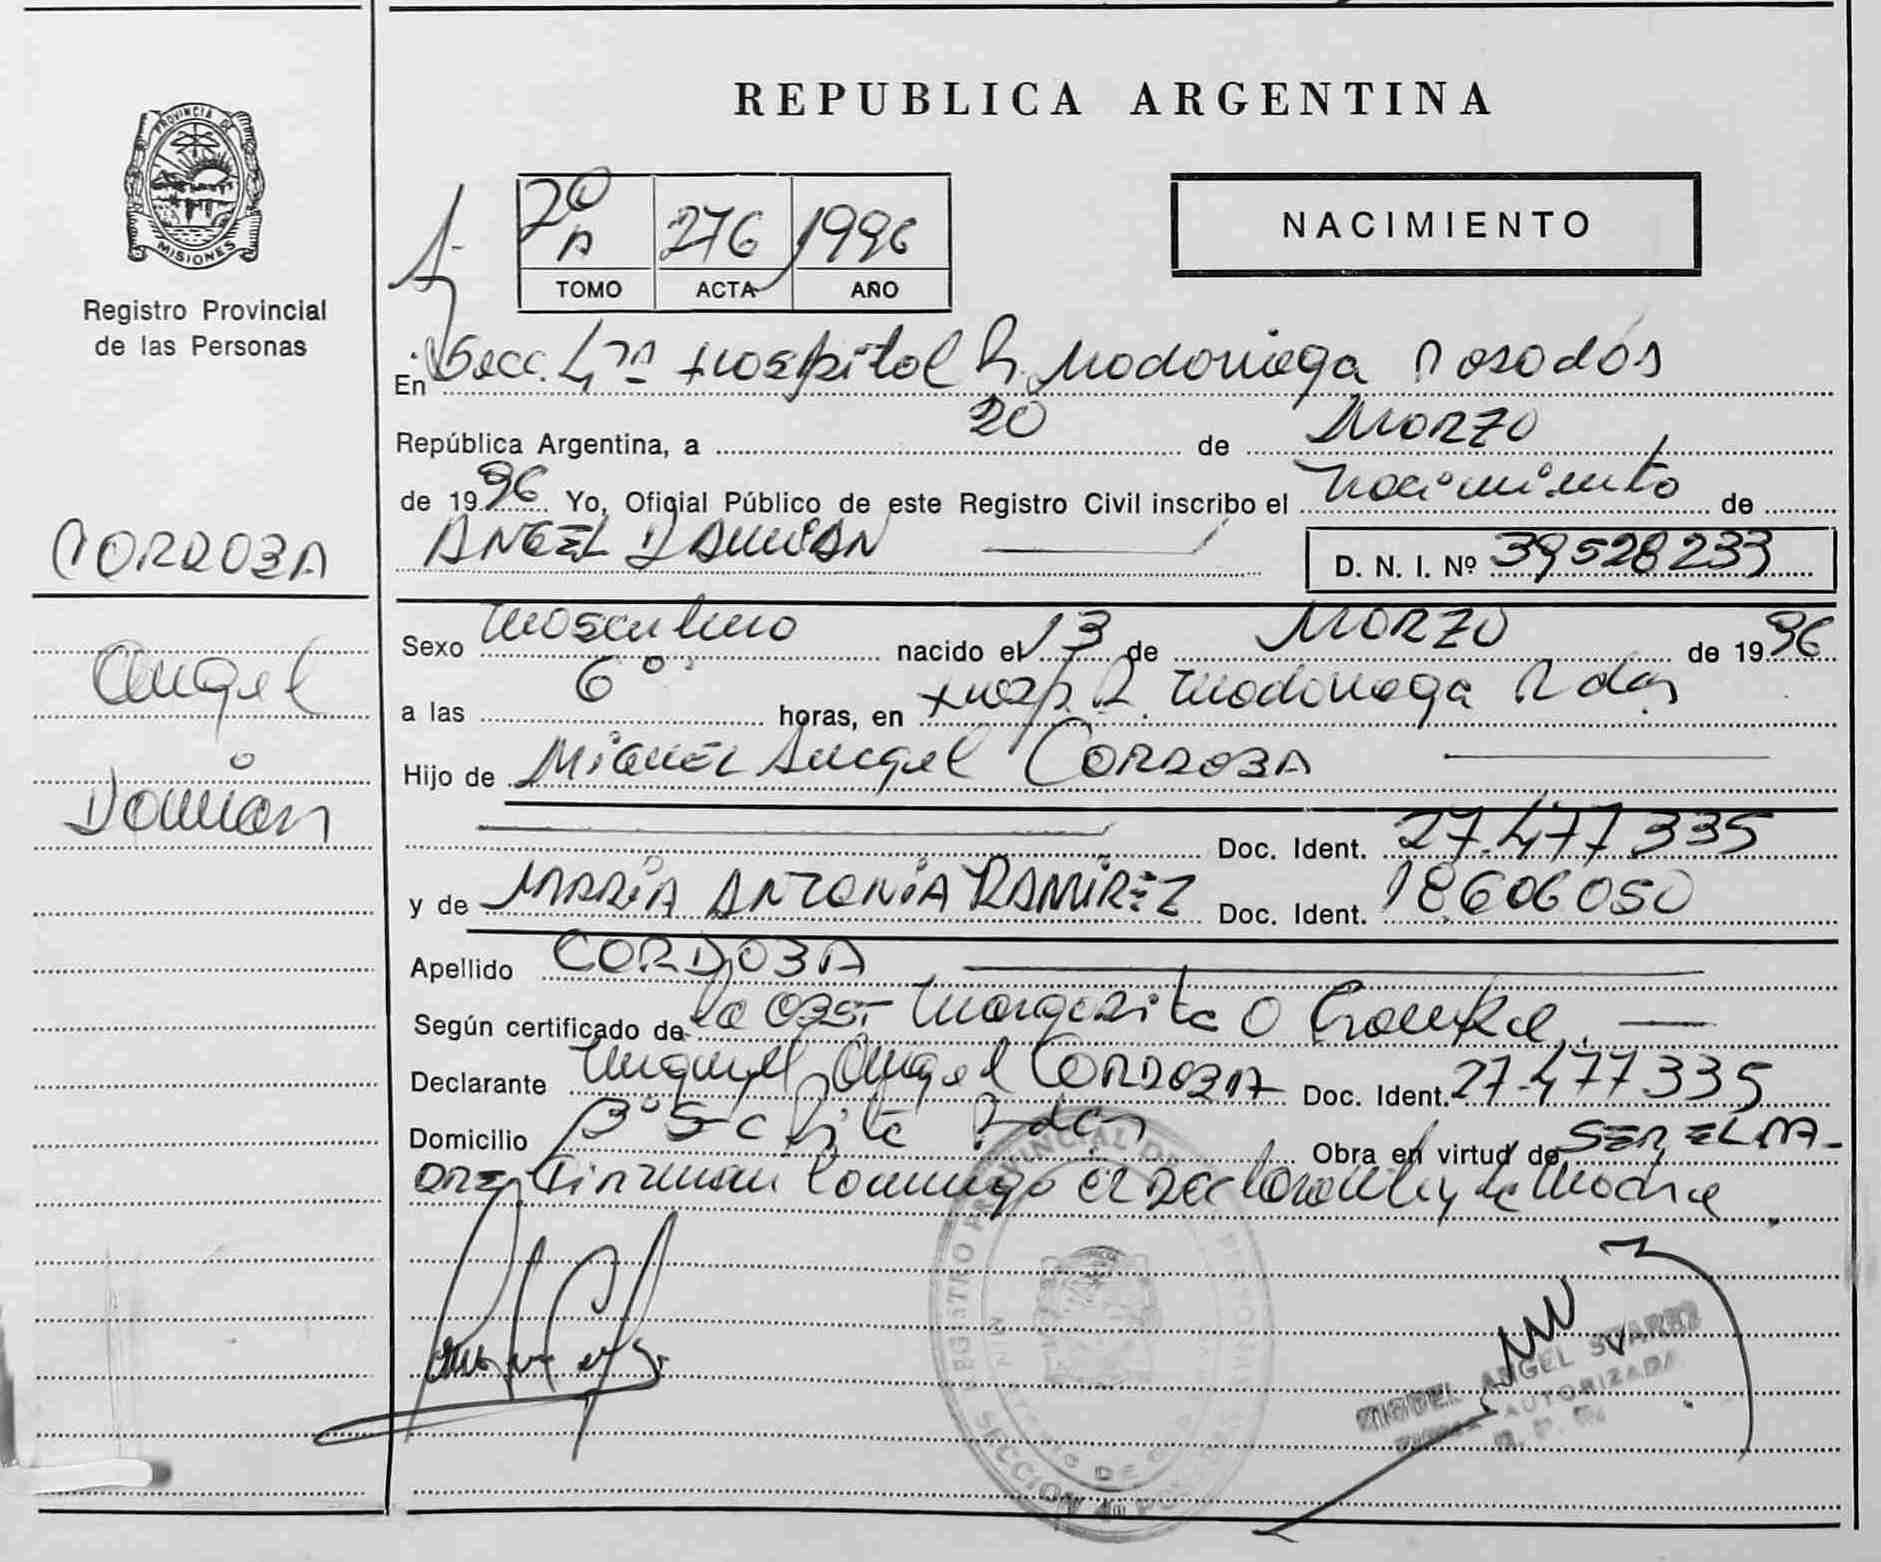 REPUBLICA ARGENTINA
PROVINCIA DE
MISIONES
Registro Provincial
de las Personas
2º
A 276 1996
TOMO ACTA AÑO
NACIMIENTO
En Secc. 4ta Hospital R. Madariaga Posadas
República Argentina, a 20 de Marzo
de 1996 Yo, Oficial Público de este Registro Civil inscribo el nacimiento de
ANGEL DAMIAN
D. N. I. Nº 39528233
CORDOBA
Angel
Damian
Sexo Masculino nacido el 13 de Marzo de 1996
a las 6º horas, en Hosp. R. Madariaga Pdas
Hijo de MIGUEL Angel CORDOBA
Doc. Ident. 27.477.335
y de MARIA ANTONIA RAMIREZ Doc. Ident. 18.606.050
Apellido CORDOBA
Según certificado de la Obst. Margarita O
Declarante Miguel Angel CORDOBA Doc. Ident. 27.477.335
Domicilio Bº Sta Rita Pdas Obra en virtud de SER EL PA-
DRE, Firman Conmigo el Declarante y la Madre
REGISTRO PROVINCIAL DE LAS PERSONAS
SECCION 4ta POSADAS
MIGUEL ANGEL SUAREZ
FIRMA AUTORIZADA
R. P. P.